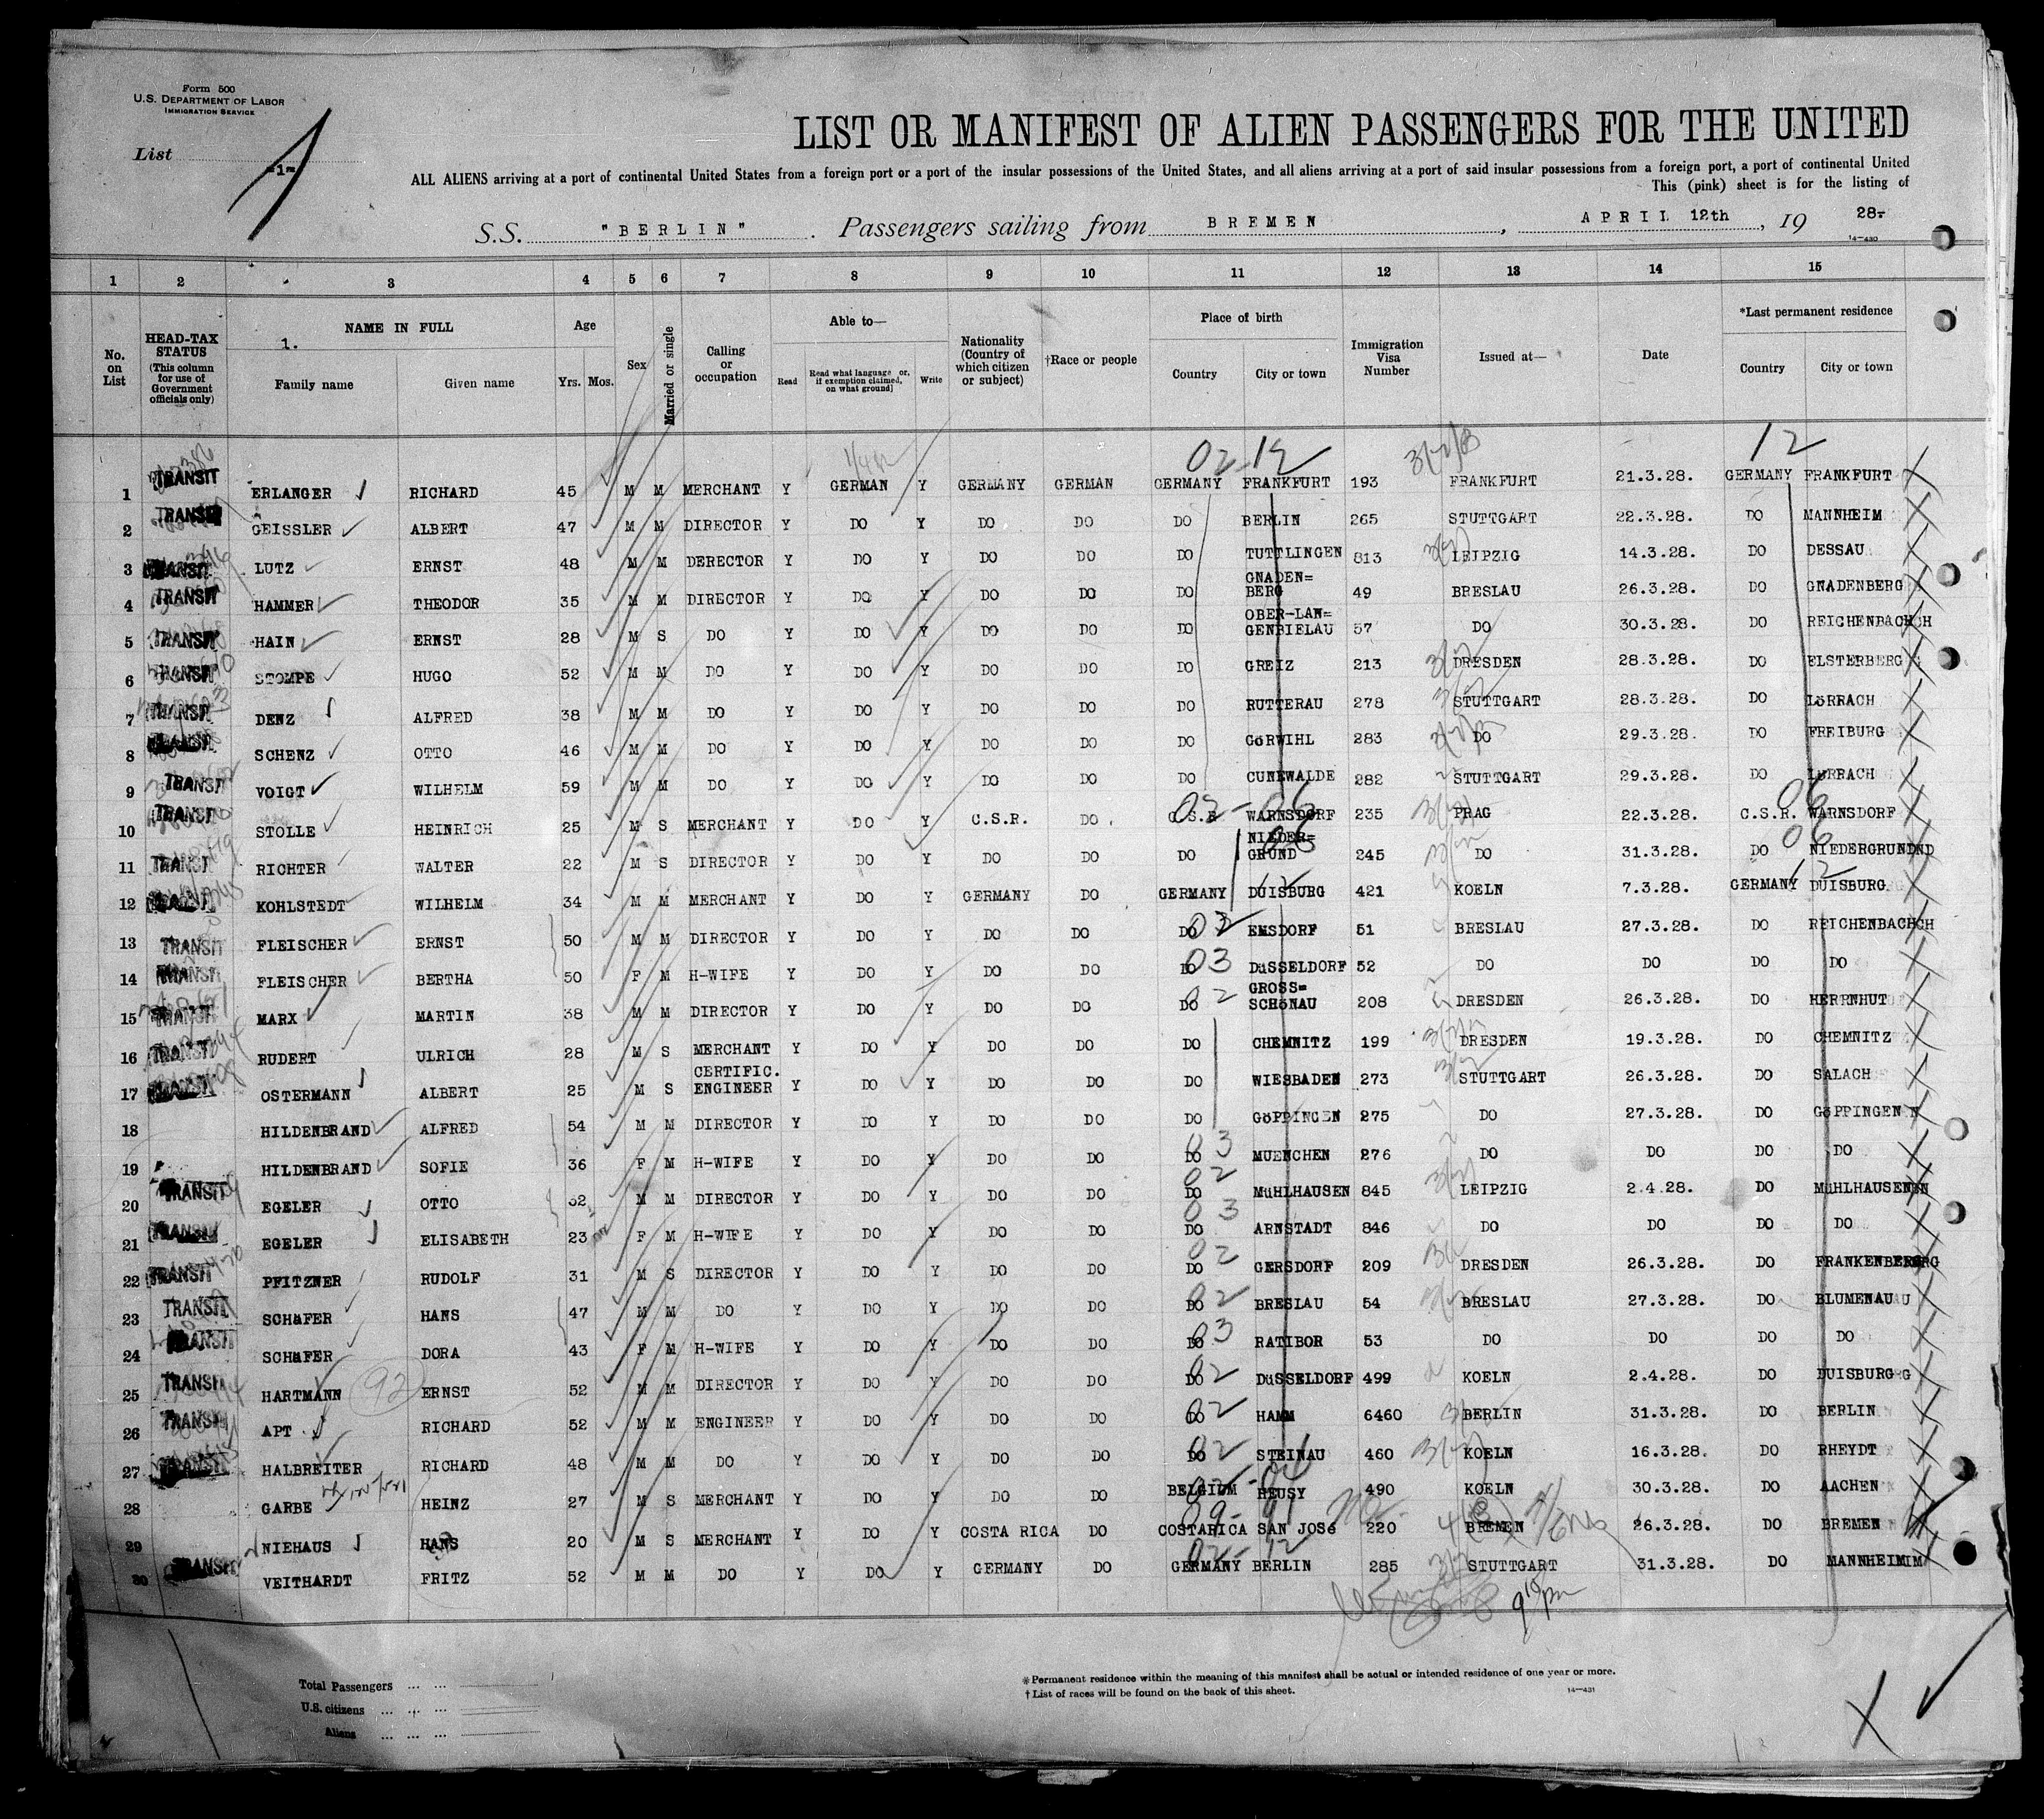 Form 500
U.S. DEPARTMENT OF LABOR
IMMIGRATION SERVICE
List -1-
LIST OR MANIFEST OF ALIEN PASSENGERS FOR THE UNITED
ALL ALIENS arriving at a port of continental United States from a foreign port or a port of the insular possessions of the United States, and all aliens arriving at a port of said insular possessions from a foreign port, a port of continental United
This (pink) sheet is for the listing of
S.S. "BERLIN". Passengers sailing from BREMEN, APRIL 12th, 19 28-
14—430
1 2 3 4 5 6 7 8 9 10 11 12 13 14 15
No. on List
HEAD-TAX STATUS (This column for use of Government officials only)
NAME IN FULL
1.
Family name Given name
Age
Yrs. Mos.
Sex
Married or single
Calling or occupation
Able to—
Read Read what language or, if exemption claimed, on what ground] Write
Nationality (Country of which citizen or subject)
†Race or people
Place of birth
Country City or town
Immigration Visa Number
Issued at—
Date
*Last permanent residence
Country City or town
02-12 12
1 TRANSIT ERLANGER RICHARD 45 M M MERCHANT Y GERMAN Y GERMANY GERMAN GERMANY FRANKFURT 193 FRANKFURT 21.3.28. GERMANY FRANKFURT
2 TRANSIT GEISSLER ALBERT 47 M M DIRECTOR Y DO Y DO DO DO BERLIN 265 STUTTGART 22.3.28. DO MANNHEIM
3 TRANSIT LUTZ ERNST 48 M M DERECTOR Y DO Y DO DO DO TUTTLINGEN 813 LEIPZIG 14.3.28. DO DESSAU
4 TRANSIT HAMMER THEODOR 35 M M DIRECTOR Y DO Y DO DO DO GNADEN=BERG 49 BRESLAU 26.3.28. DO GNADENBERG
5 TRANSIT HAIN ERNST 28 M S DO Y DO Y DO DO DO OBER-LAN=GENBIELAU 57 DO 30.3.28. DO REICHENBACH
6 TRANSIT STOMPE HUGO 52 M M DO Y DO Y DO DO DO GREIZ 213 DRESDEN 28.3.28. DO ELSTERBERG
7 TRANSIT DENZ ALFRED 38 M M DO Y DO Y DO DO DO RUTTERAU 278 STUTTGART 28.3.28. DO LöRRACH
8 SCHENZ OTTO 46 M M DO Y DO Y DO DO DO GöRWIHL 283 DO 29.3.28. DO FREIBURG
9 TRANSIT VOIGT WILHELM 59 M M DO Y DO Y DO DO DO CUNEWALDE 282 STUTTGART 29.3.28. DO LöRRACH
02-06 06
10 TRANSIT STOLLE HEINRICH 25 M S MERCHANT Y DO Y C.S.R. DO C.S.R WARNSDORF 235 PRAG 22.3.28. C.S.R. WARNSDORF
06 06
11 TRANSIT RICHTER WALTER 22 M S DIRECTOR Y DO Y DO DO DO NIEDER=GRUND 245 DO 31.3.28. DO NIEDERGRUND
12 12
12 KOHLSTEDT WILHELM 34 M M MERCHANT Y DO Y GERMANY DO GERMANY DUISBURG 421 KOELN 7.3.28. GERMANY DUISBURG
13 TRANSIT FLEISCHER ERNST 50 M M DIRECTOR Y DO Y DO DO DO 02 EMSDORF 51 BRESLAU 27.3.28. DO REICHENBACH
14 TRANSIT FLEISCHER BERTHA 50 F M H-WIFE Y DO Y DO DO DO 03 DüSSELDORF 52 DO DO DO DO
15 TRANSIT MARX MARTIN 38 M M DIRECTOR Y DO Y DO DO DO 02 GROSS=SCHöNAU 208 DRESDEN 26.3.28. DO HERRNHUT
16 TRANSIT RUDERT ULRICH 28 M S MERCHANT Y DO Y DO DO DO CHEMNITZ 199 DRESDEN 19.3.28. DO CHEMNITZ
17 OSTERMANN ALBERT 25 M S CERTIFIC. ENGINEER Y DO Y DO DO DO WIESBADEN 273 STUTTGART 26.3.28. DO SALACH
18 HILDENBRAND ALFRED 54 M M DIRECTOR Y DO Y DO DO DO GöPPINGEN 275 DO 27.3.28. DO GöPPINGEN
19 HILDENBRAND SOFIE 36 F M H-WIFE Y DO Y DO DO DO 03 MUENCHEN 276 DO DO DO DO
20 TRANSIT EGELER OTTO 32 M M DIRECTOR Y DO Y DO DO DO 02 MüHLHAUSEN 845 LEIPZIG 2.4.28. DO MüHLHAUSEN
21 TRANSIT EGELER ELISABETH 23 F M H-WIFE Y DO Y DO DO DO 03 ARNSTADT 846 DO DO DO DO
22 TRANSIT PFITZNER RUDOLF 31 M S DIRECTOR Y DO Y DO DO DO 02 GERSDORF 209 DRESDEN 26.3.28. DO FRANKENBERG
23 TRANSIT SCHäFER HANS 47 M M DO Y DO Y DO DO DO 02 BRESLAU 54 BRESLAU 27.3.28. DO BLUMENAU
24 TRANSIT SCHäFER DORA 43 F M H-WIFE Y DO Y DO DO DO 03 RATIBOR 53 DO DO DO DO
25 TRANSIT HARTMANN 92 ERNST 52 M M DIRECTOR Y DO Y DO DO DO 02 DüSSELDORF 499 KOELN 2.4.28. DO DUISBURG
26 TRANSIT APT RICHARD 52 M M ENGINEER Y DO Y DO DO DO 02 HAMM 6460 BERLIN 31.3.28. DO BERLIN
27 TRANSIT HALBREITER RICHARD 48 M M DO Y DO Y DO DO DO 02 STEINAU 460 KOELN 16.3.28. DO RHEYDT
02-04
28 GARBE HEINZ 27 M S MERCHANT Y DO Y DO DO BELGIUM HEUSY 490 KOELN 30.3.28. DO AACHEN
09-91
29 NIEHAUS HANS 20 M S MERCHANT Y DO Y COSTA RICA DO COSTARICA SAN JOSé 220 BREMEN 26.3.28. DO BREMEN
02-12
30 TRANSIT VEITHARDT FRITZ 52 M M DO Y DO Y GERMANY DO GERMANY BERLIN 285 STUTTGART 31.3.28. DO MANNHEIM
9 15 pm
Total Passengers
U.S. citizens
Aliens
*Permanent residence within the meaning of this manifest shall be actual or intended residence of one year or more.
†List of races will be found on the back of this sheet.
14—431